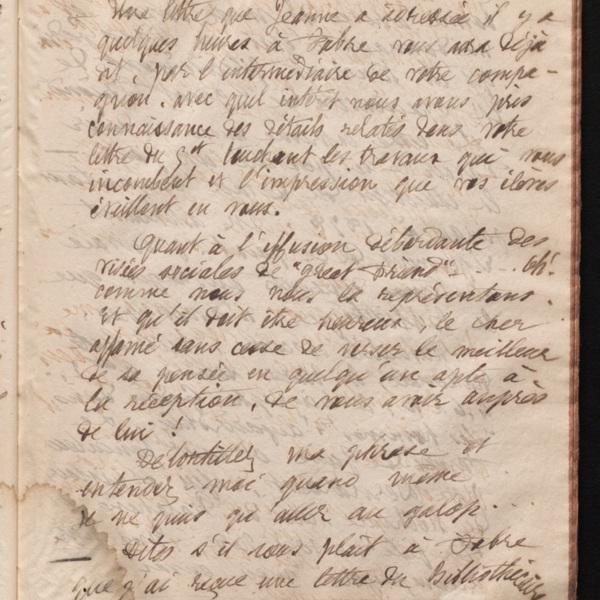 Une lettre que Jeanne a adressée il y a
quelques heures à Fabre vous aura déjà
dit, par l'intermédiaire de votre compa-
gnon, avec quel intérêt nous avons pris
connaissance des détails relatés dans votre
lettre du 3 ct touchant les travaux qui vous
incombent et l'impression que vos élèves
éveillent en vous.
Quant à l'effusion débordante des
visées sociales de "great brand" - . . oh!
comme nous nous la représentons.
Et qu'il doit être heureux, le cher
affamé sans cesse de verser le meilleur
de sa pensée en quelqu'un apte à
la réception, de vous avoir auprès
de lui !
Détortillez ma phrase et
entendez moi quand même
je ne puis qu'aller au galop.
Dites s'il vous plaît à Fabre
que j'ai reçue une lettre du Bibliothécaire